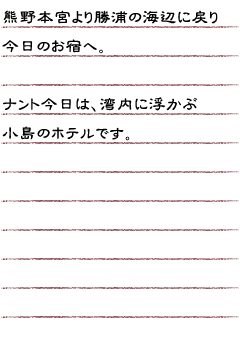 熊野本宮より勝浦の海辺に戻り
今日のお宿へ。
ナント今日は、湾内に浮かぶ
小島のホテルです。